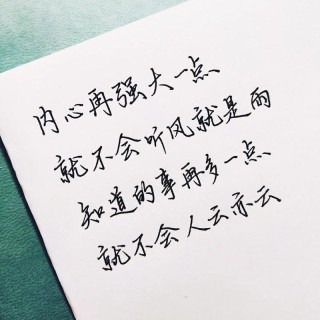 内心再强大一点
就不会听风就是雨
知道的事再多一点
就不会人云亦云